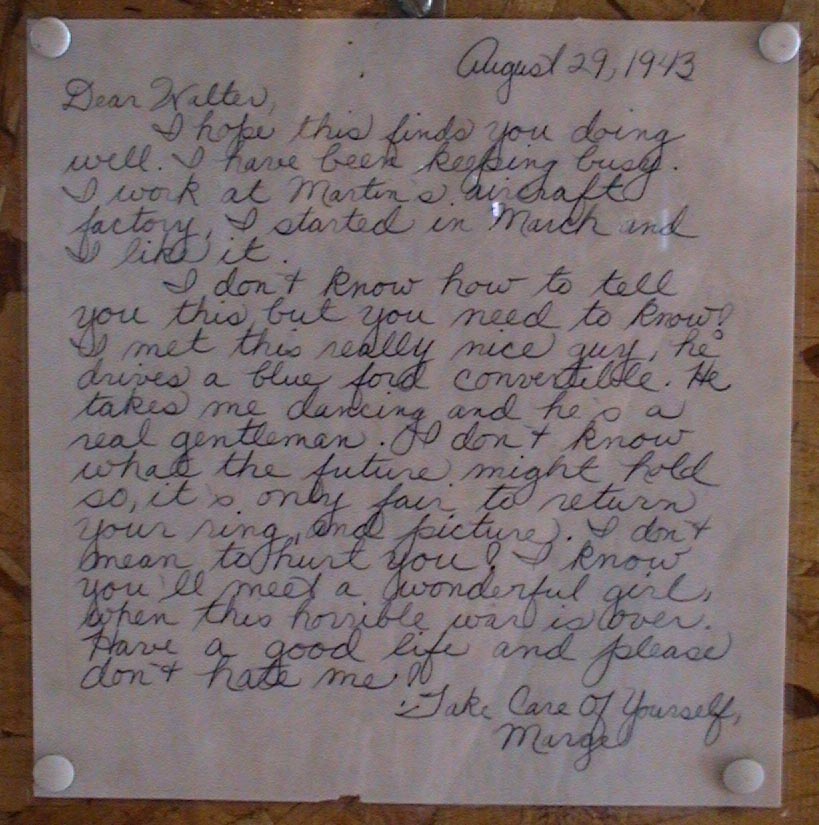 August 29, 1943
Dear Walter,
I hope this finds you doing
well. I have been keeping busy.
I work at Martin's aircraft
factory, I started in March and
I like it.
I don't know how to tell
you this, but you need to know!
I met this really nice guy, he
drives a blue ford convertible. He
takes me dancing and he's a
real gentleman. I don't know
what the future might hold
so, it's only fair to return
your ring, and picture. I don't
mean to hurt you! I know
you'll meet a wonderful girl,
when this horrible war is over.
Have a good life and please
don't hate me!
Take Care Of Yourself,
Marge